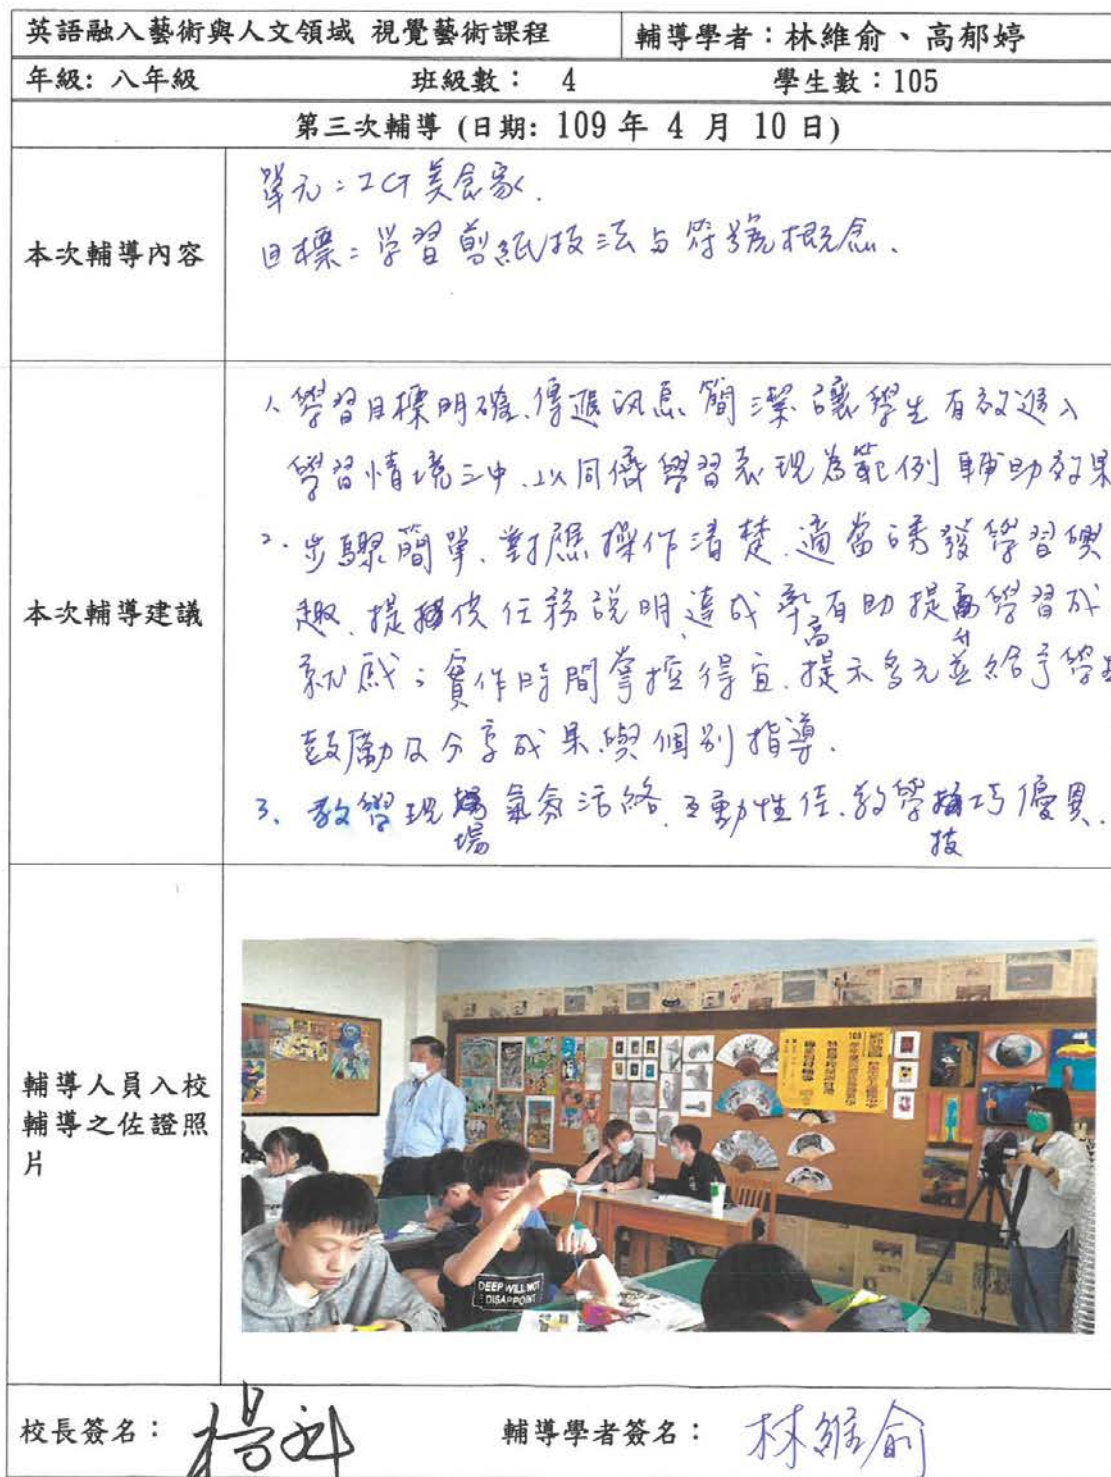 英語融入藝術與人文領域 視覺藝術課程
輔導學者：林維俞、高郁婷
年級: 八年級 班級數： 4 學生數：105
第三次輔導 (日期: 109 年 4 月 10 日)
本次輔導內容
單元：IG美食家.
目標：学習剪紙技法与符號概念.
本次輔導建議
1. 學習目標明確、傳遞訊息簡潔讓學生有效進入
學習情境之中、以同儕學習表現為範例輔助效果
2. 步驟簡單、對應操作清楚、適當誘發學習興
趣、提供任務說明、達成率高有助提升學習成
就感；實作時間掌控得宜、提示多元並給予學生
鼓勵及分享成果與個別指導.
3、教學現場氣氛活絡、互動性佳、教學技巧優異.
輔導人員入校
輔導之佐證照
片
DEEP WILL NOT
DISAPPOINT
校長簽名：
輔導學者簽名： 林維俞